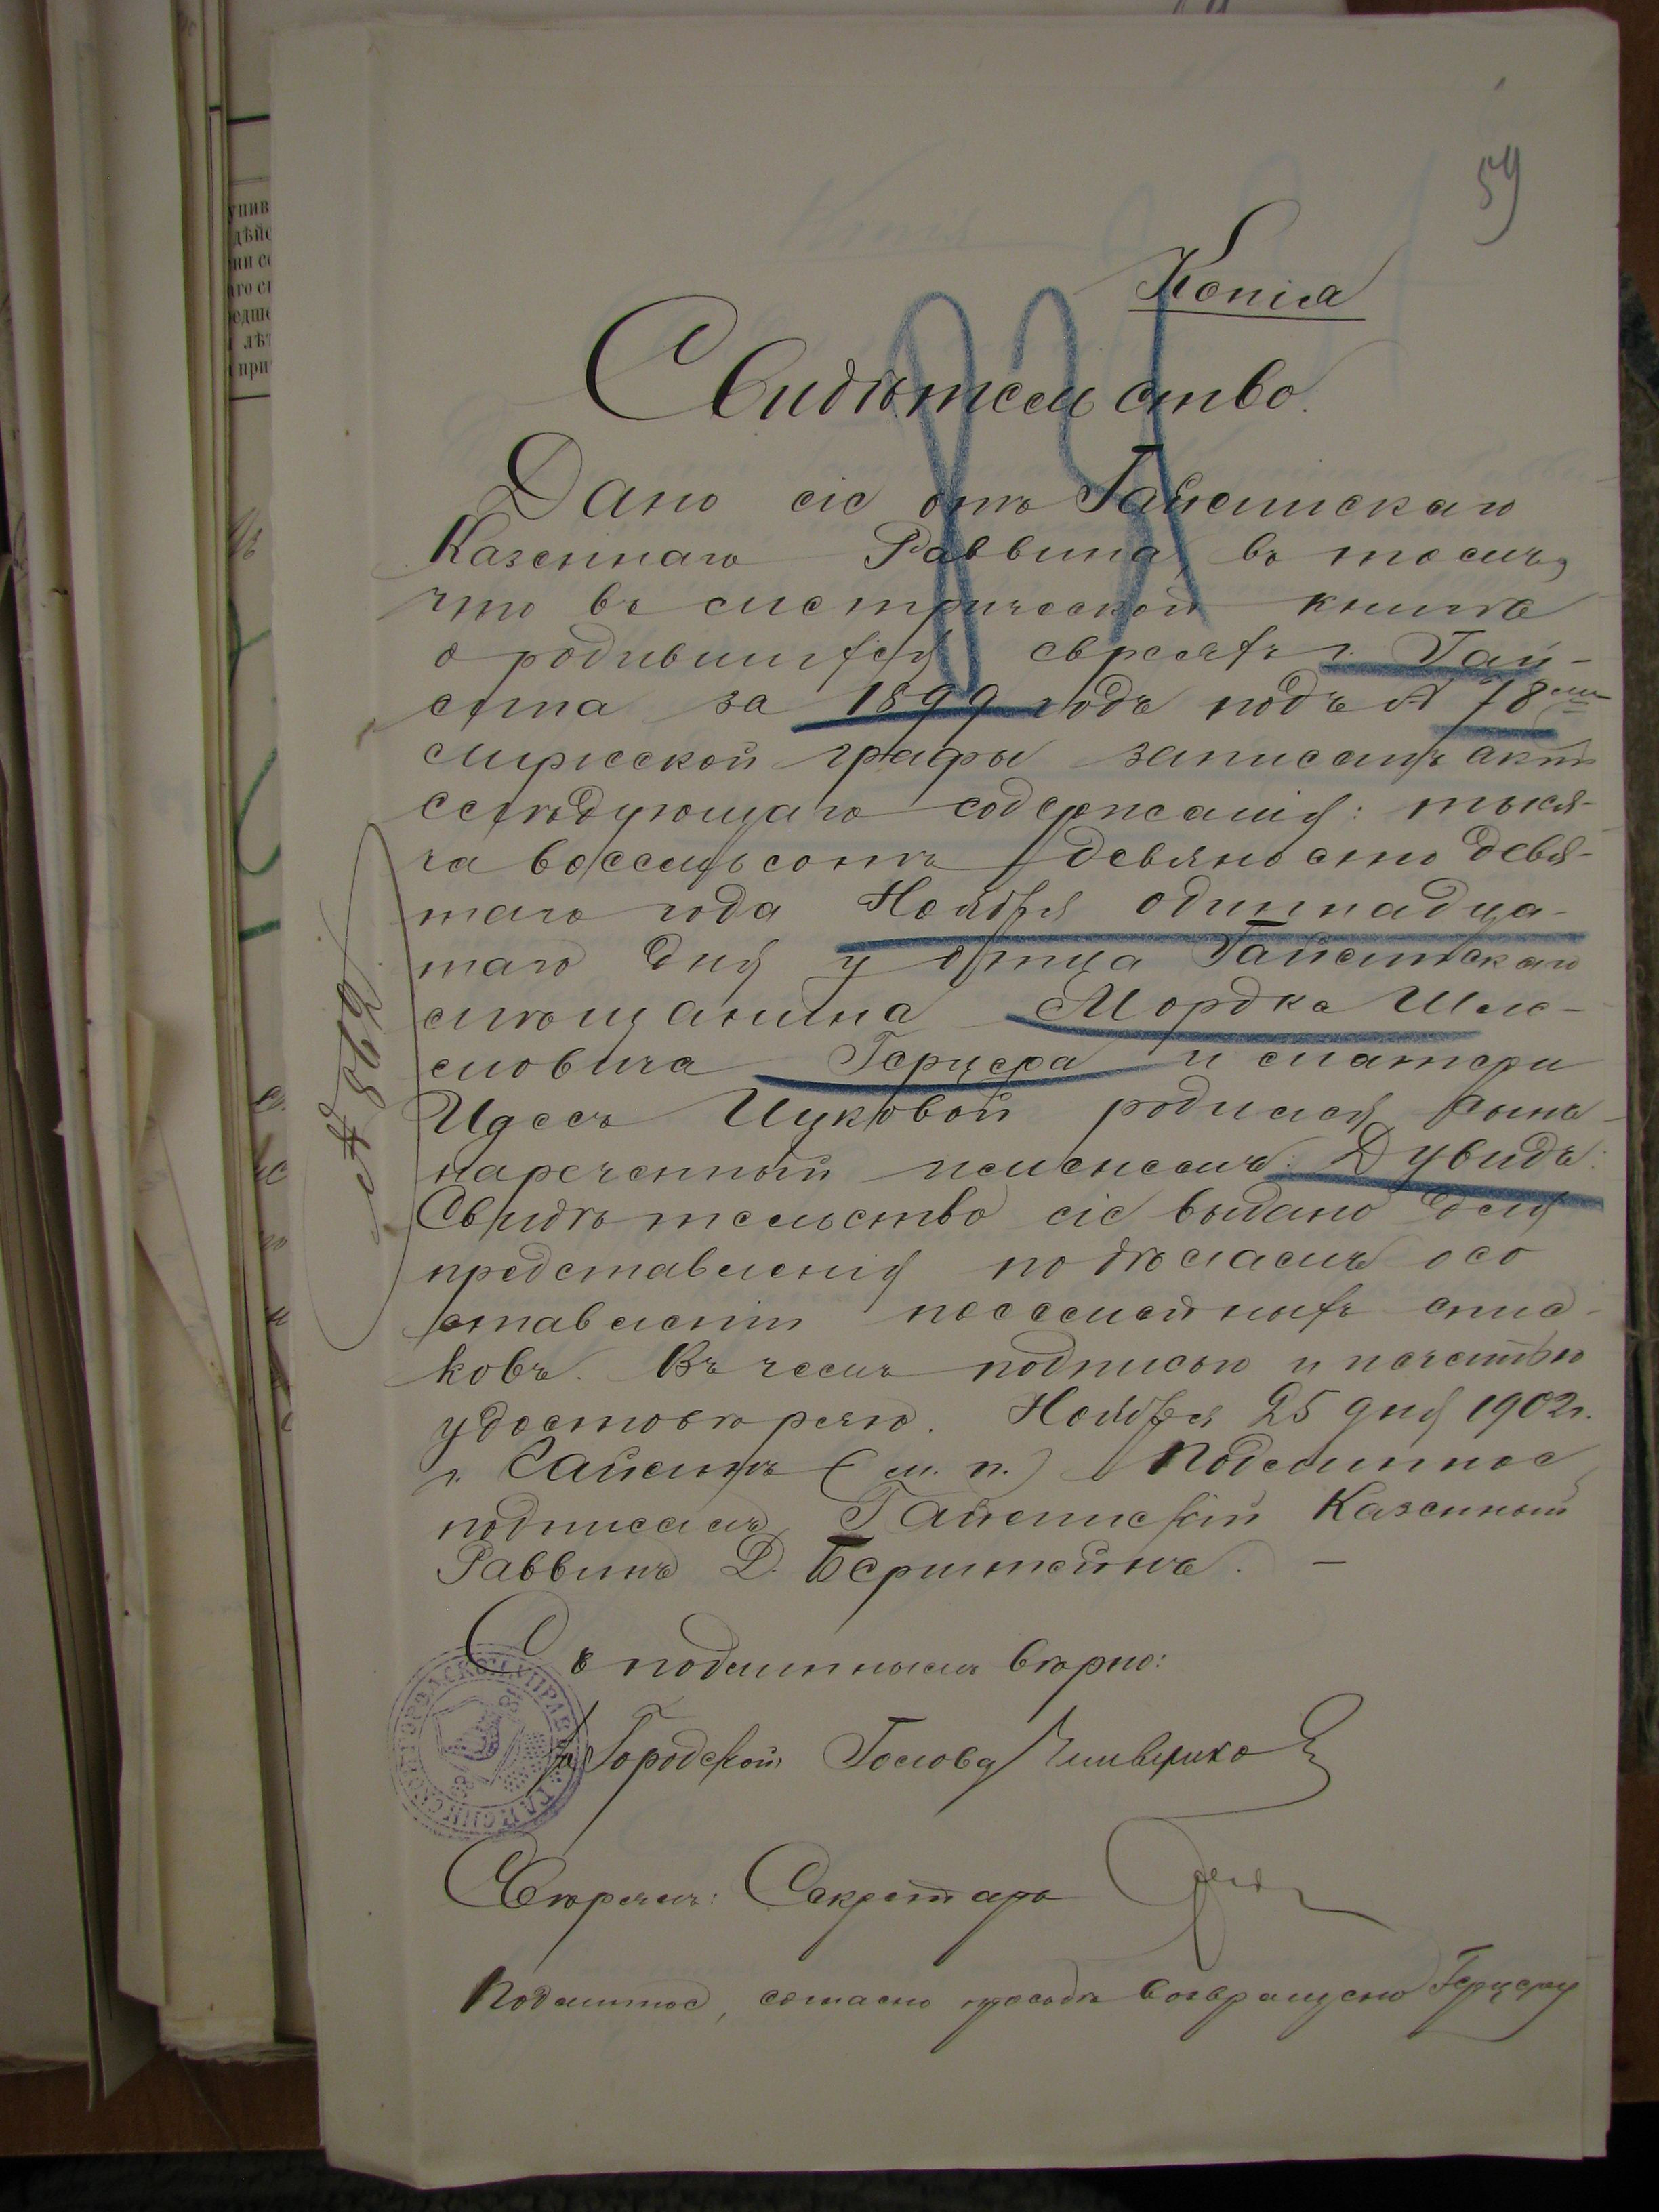 59
Копія
Свидѣтельство.
Дано сіе отъ Гайсинскаго
Казеннаго Раввина, въ томъ,
что въ метрической книгѣ
о родившихся евреяхъ г. Гай-
сина за 1899 годъ подъ № 78мъ
мужеской графы записанъ актъ
слѣдующаго содержанія: тыся-
ча восемьсотъ девяносто девя-
таго года Ноября одиннадца-
таго дня у отца Гайсинскаго
мѣщанина Мордка Шле-
мовича Герцера и матери
Идесъ Ицковой родился сынъ
нареченный именемъ: Дувидъ.
Свидѣтельство сіе выдано для
представленія по дѣламъ о со
ставленіи посемейныхъ спис-
ковъ. Въ чемъ подписью и печатью
удостовѣряю. Ноября 25 дня 1902 г.
г. Гайсинъ (м. п.) Подлинное
подписалъ Гайсинскій Казенный
Раввинъ Д. Бернштейнъ. —
Съ подлиннымъ вѣрно:
Городской Голова
Свѣрялъ: Секретарь
Подлинное, согласно просьбѣ возвращено Герцеру
№ 862
унив
дѣйс
ни со
аго сі
едше
лѣт
при